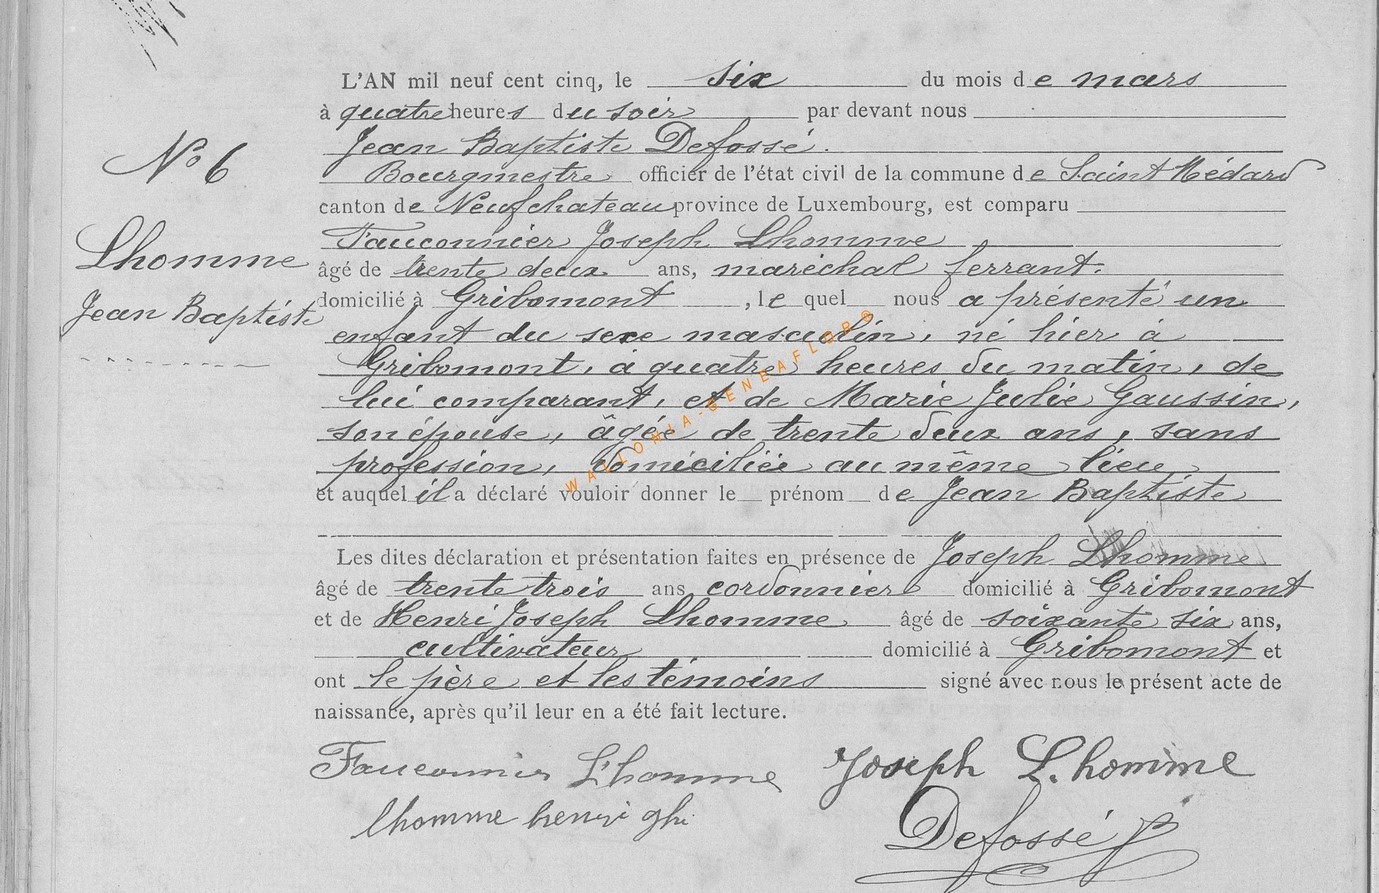 L'AN mil neuf cent cinq, le six du mois de mars
à quatre heures du soir par devant nous
Jean Baptiste Defossé.
Bourgmestre officier de l'état civil de la commune de Saint Médard
canton de Neufchateau province de Luxembourg, est comparu
Fauconnier Joseph Lhomme
âgé de trente deux ans, maréchal ferrant.
domicilié à Gribomont, le quel nous a présenté un
enfant du sexe masculin, né hier à
Gribomont, à quatre heures du matin, de
lui comparant, et de Marie Julie Gaussin,
son épouse, âgée de trente deux ans, sans
profession, domiciliée au même lieu
et auquel il a déclaré vouloir donner le prénom de Jean Baptiste
Les dites déclaration et présentation faites en présence de Joseph Lhomme
âgé de trente trois ans cordonnier domicilié à Gribomont
et de Henri Joseph Lhomme âgé de soixante six ans,
cultivateur domicilié à Gribomont et
ont le père et les témoins signé avec nous le présent acte de
naissance, après qu'il leur en a été fait lecture.
No 6
Lhomme
Jean Baptiste
Fauconnier L'homme
Joseph L.homme
lhomme henri
Defossé
WALLONIA-GENEAFLOR©